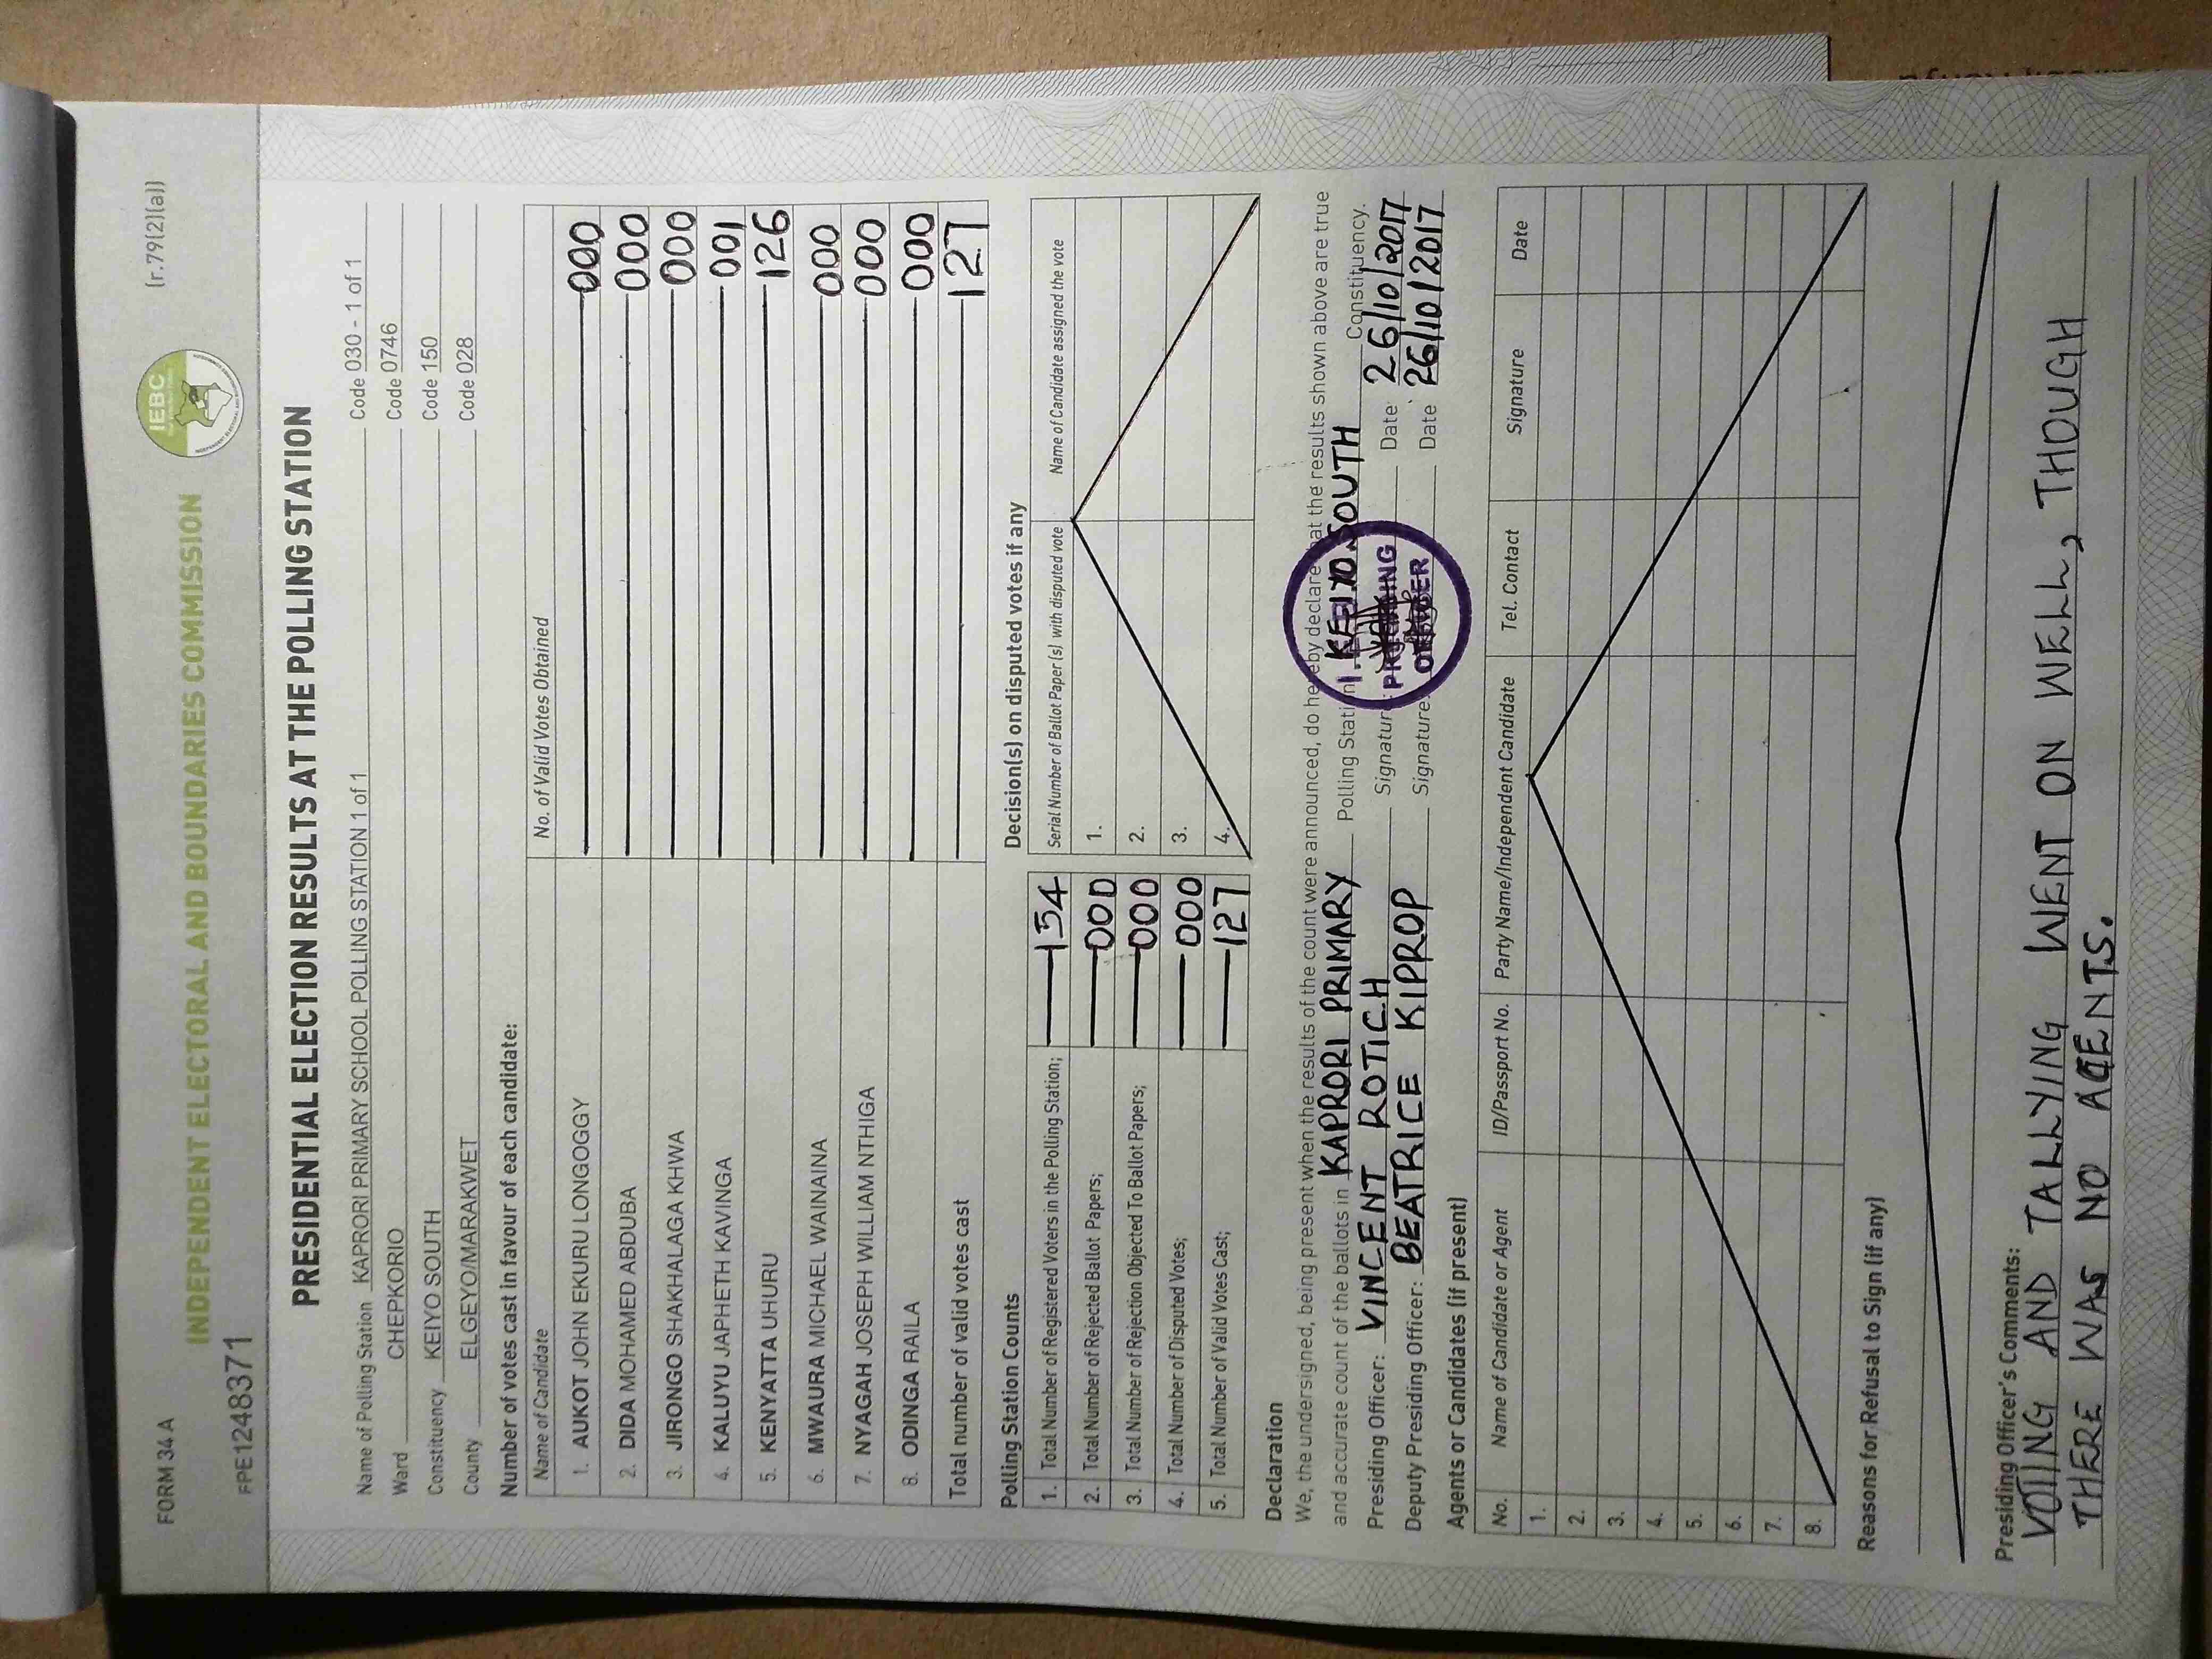 FORM 34A
(r.79(2)(a))
INDEPENDENT ELECTORAL AND BOUNDARIES COMMISSION
IEBC
FPE1248371
PRESIDENTIAL ELECTION RESULTS AT THE POLLING STATION
Name of Polling Station KAPRORI PRIMARY SCHOOL POLLING STATION 1 of 1 Code 030 - 1 of 1
Ward CHEPKORIO Code 0746
Constituency KEIYO SOUTH Code 150
County ELGEYO/MARAKWET Code 028
Number of votes cast in favour of each candidate:
Name of Candidate No. of Valid Votes Obtained
1. AUKOT JOHN EKURU LONGOGGY 000
2. DIDA MOHAMED ABDUBA 000
3. JIRONGO SHAKHALAGA KHWA 000
4. KALUYU JAPHETH KAVINGA 001
5. KENYATTA UHURU 126
6. MWAURA MICHAEL WAINAINA 000
7. NYAGAH JOSEPH WILLIAM NTHIGA 000
8. ODINGA RAILA 000
Total number of valid votes cast 127
Polling Station Counts
1. Total Number of Registered Voters in the Polling Station; 154
2. Total Number of Rejected Ballot Papers; 000
3. Total Number of Rejection Objected To Ballot Papers; 000
4. Total Number of Disputed Votes; 000
5. Total Number of Valid Votes Cast; 127
Decision(s) on disputed votes if any
Serial Number of Ballot Paper(s) with disputed vote Name of Candidate assigned the vote
1.
2.
3.
4.
Declaration
We, the undersigned, being present when the results of the count were announced, do hereby declare that the results shown above are true
and accurate count of the ballots in KAPRORI PRIMARY Polling Station KEIYO SOUTH Constituency.
Presiding Officer: VINCENT ROTICH Signature: Date: 26/10/2017
Deputy Presiding Officer: BEATRICE KIPROP Signature: Date: 26/10/2017
PRESIDING
OFFICER
Agents or Candidates (if present)
No. Name of Candidate or Agent ID/Passport No. Party Name/Independent Candidate Tel. Contact Signature Date
1.
2.
3.
4.
5.
6.
7.
8.
Reasons for Refusal to Sign (if any)
Presiding Officer's Comments:
VOTING AND TALLYING WENT ON WELL, THOUGH
THERE WAS NO AGENTS.